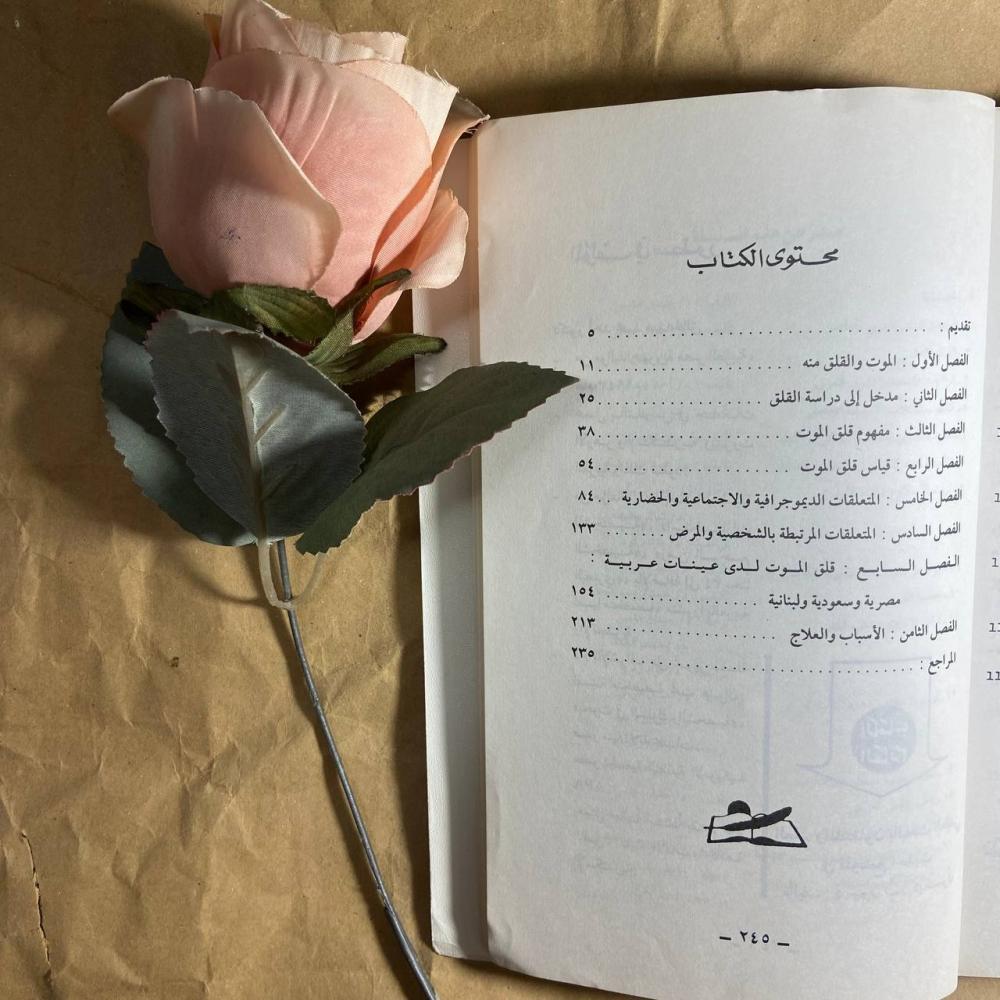 محتوى الكتاب
تقديم : ........................................ ٥
الفصل الأول : الموت والقلق منه .................... ١١
الفصل الثاني : مدخل إلى دراسة القلق .................. ٢٥
الفصل الثالث : مفهوم قلق الموت .................... ٣٨
الفصل الرابع : قياس قلق الموت .................... ٥٤
الفصل الخامس : المتعلقات الديموجرافية والاجتماعية والحضارية .. ٨٤
الفصل السادس : المتعلقات المرتبطة بالشخصية والمرض ....... ١٣٣
الفصل السابع : قلق الموت لدى عينات عربية
مصرية وسعودية ولبنانية ................. ١٥٤
الفصل الثامن : الأسباب والعلاج .................... ٢١٣
المراجع : ........................................ ٢٣٥
– ٢٤٥ –